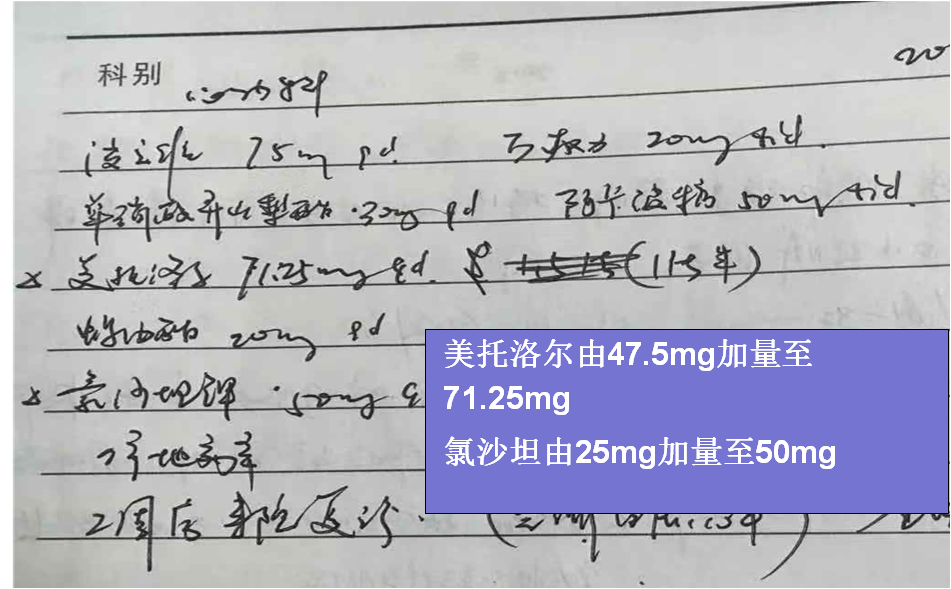 科别 20
波立维 75mg qd. 万爽力 20mg tid.
单硝酸异山梨酯 30mg qd 阿卡波糖 50mg tid.
× 美托洛尔 71.25mg qd. (1片半)
20mg qd
× 氯沙坦钾 50mg
停地高辛
2周后 来院复诊.
美托洛尔由47.5mg加量至
71.25mg
氯沙坦由25mg加量至50mg